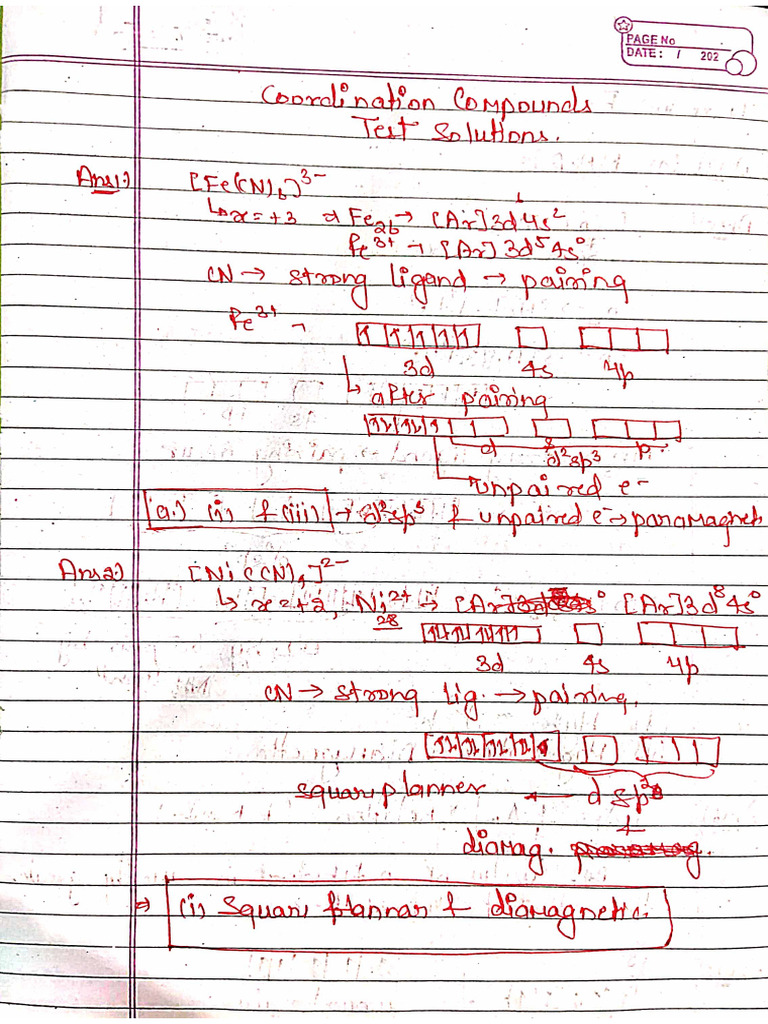 PAGE No
DATE: / 202
Coordination Compounds
Test Solutions.
Ans1:) [Fe(CN)6]3-
↳ x=+3 ⇒ Fe26 → [Ar]3d6 4s2
Fe3+ → [Ar]3d5 4s0
CN → strong ligand → pairing
Fe3+ →
3d 4s 4p
↳ after pairing
d s p
d2sp3
unpaired e-
(a.) (i) & (iii) → d2sp3 & unpaired e- → paramagnet
Ans2:) [Ni(CN)4]2-
↳ x=+2, Ni2+ → [Ar] [Ar]3d8 4s0
28
3d 4s 4p
CN → strong lig. → pairing.
square planner ← dsp2
+
diamag.
⇒ (i) Square plannar & diamagnetic.